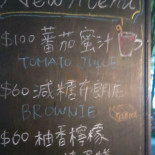 New Menu
$100蕃茄蜜汁
TOMATO JUICE
$60減糖布朗尼
BROWNIE
$60柚香檸檬